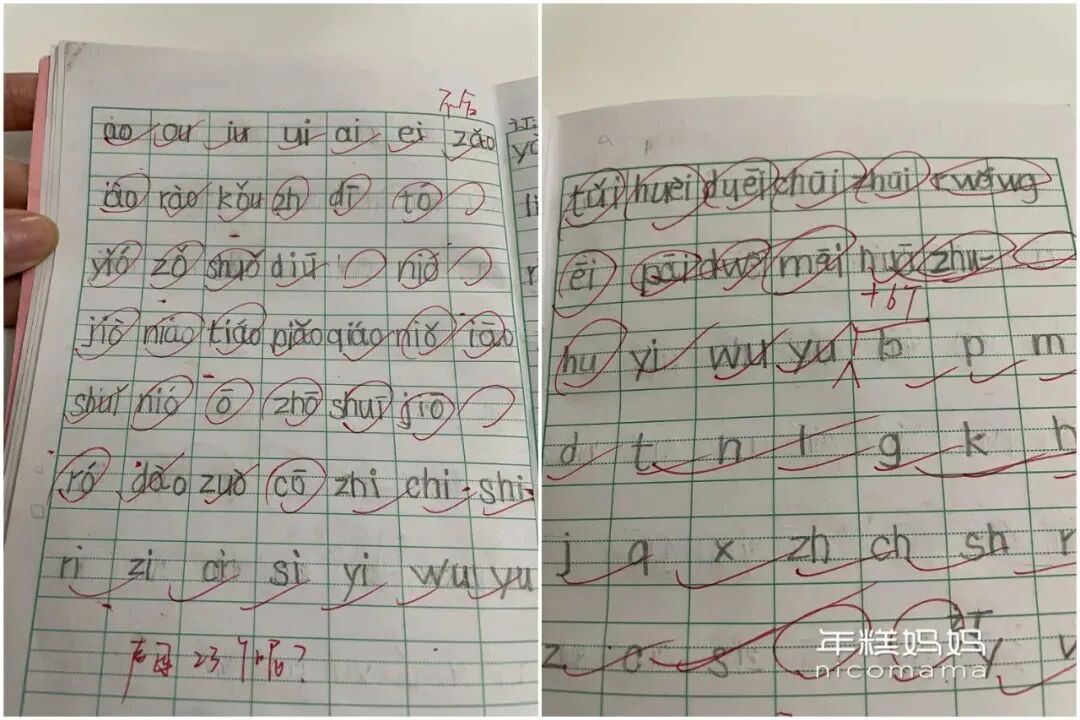 ào ou iu ui ai ei zǎo
iāo rào kǒu zh dī tó
yió zǒ shuǒ diū niǒ
jiò niáo tiáo piǎo qiáo niǒ iāo
shuǐ nió ō zhō shuī jiō
ró dào zuò cō zhi chi shi
ri zi ci si yi wu yu
声母 23个呢?
tuǐ huèi duēi chūi zhūi
ēi pāi duō mēi huā zhu
+6T
hu yi wu yu b p m
d t n l g k h
j q x zh ch sh r
z c s y w
年糕妈妈
nicomama